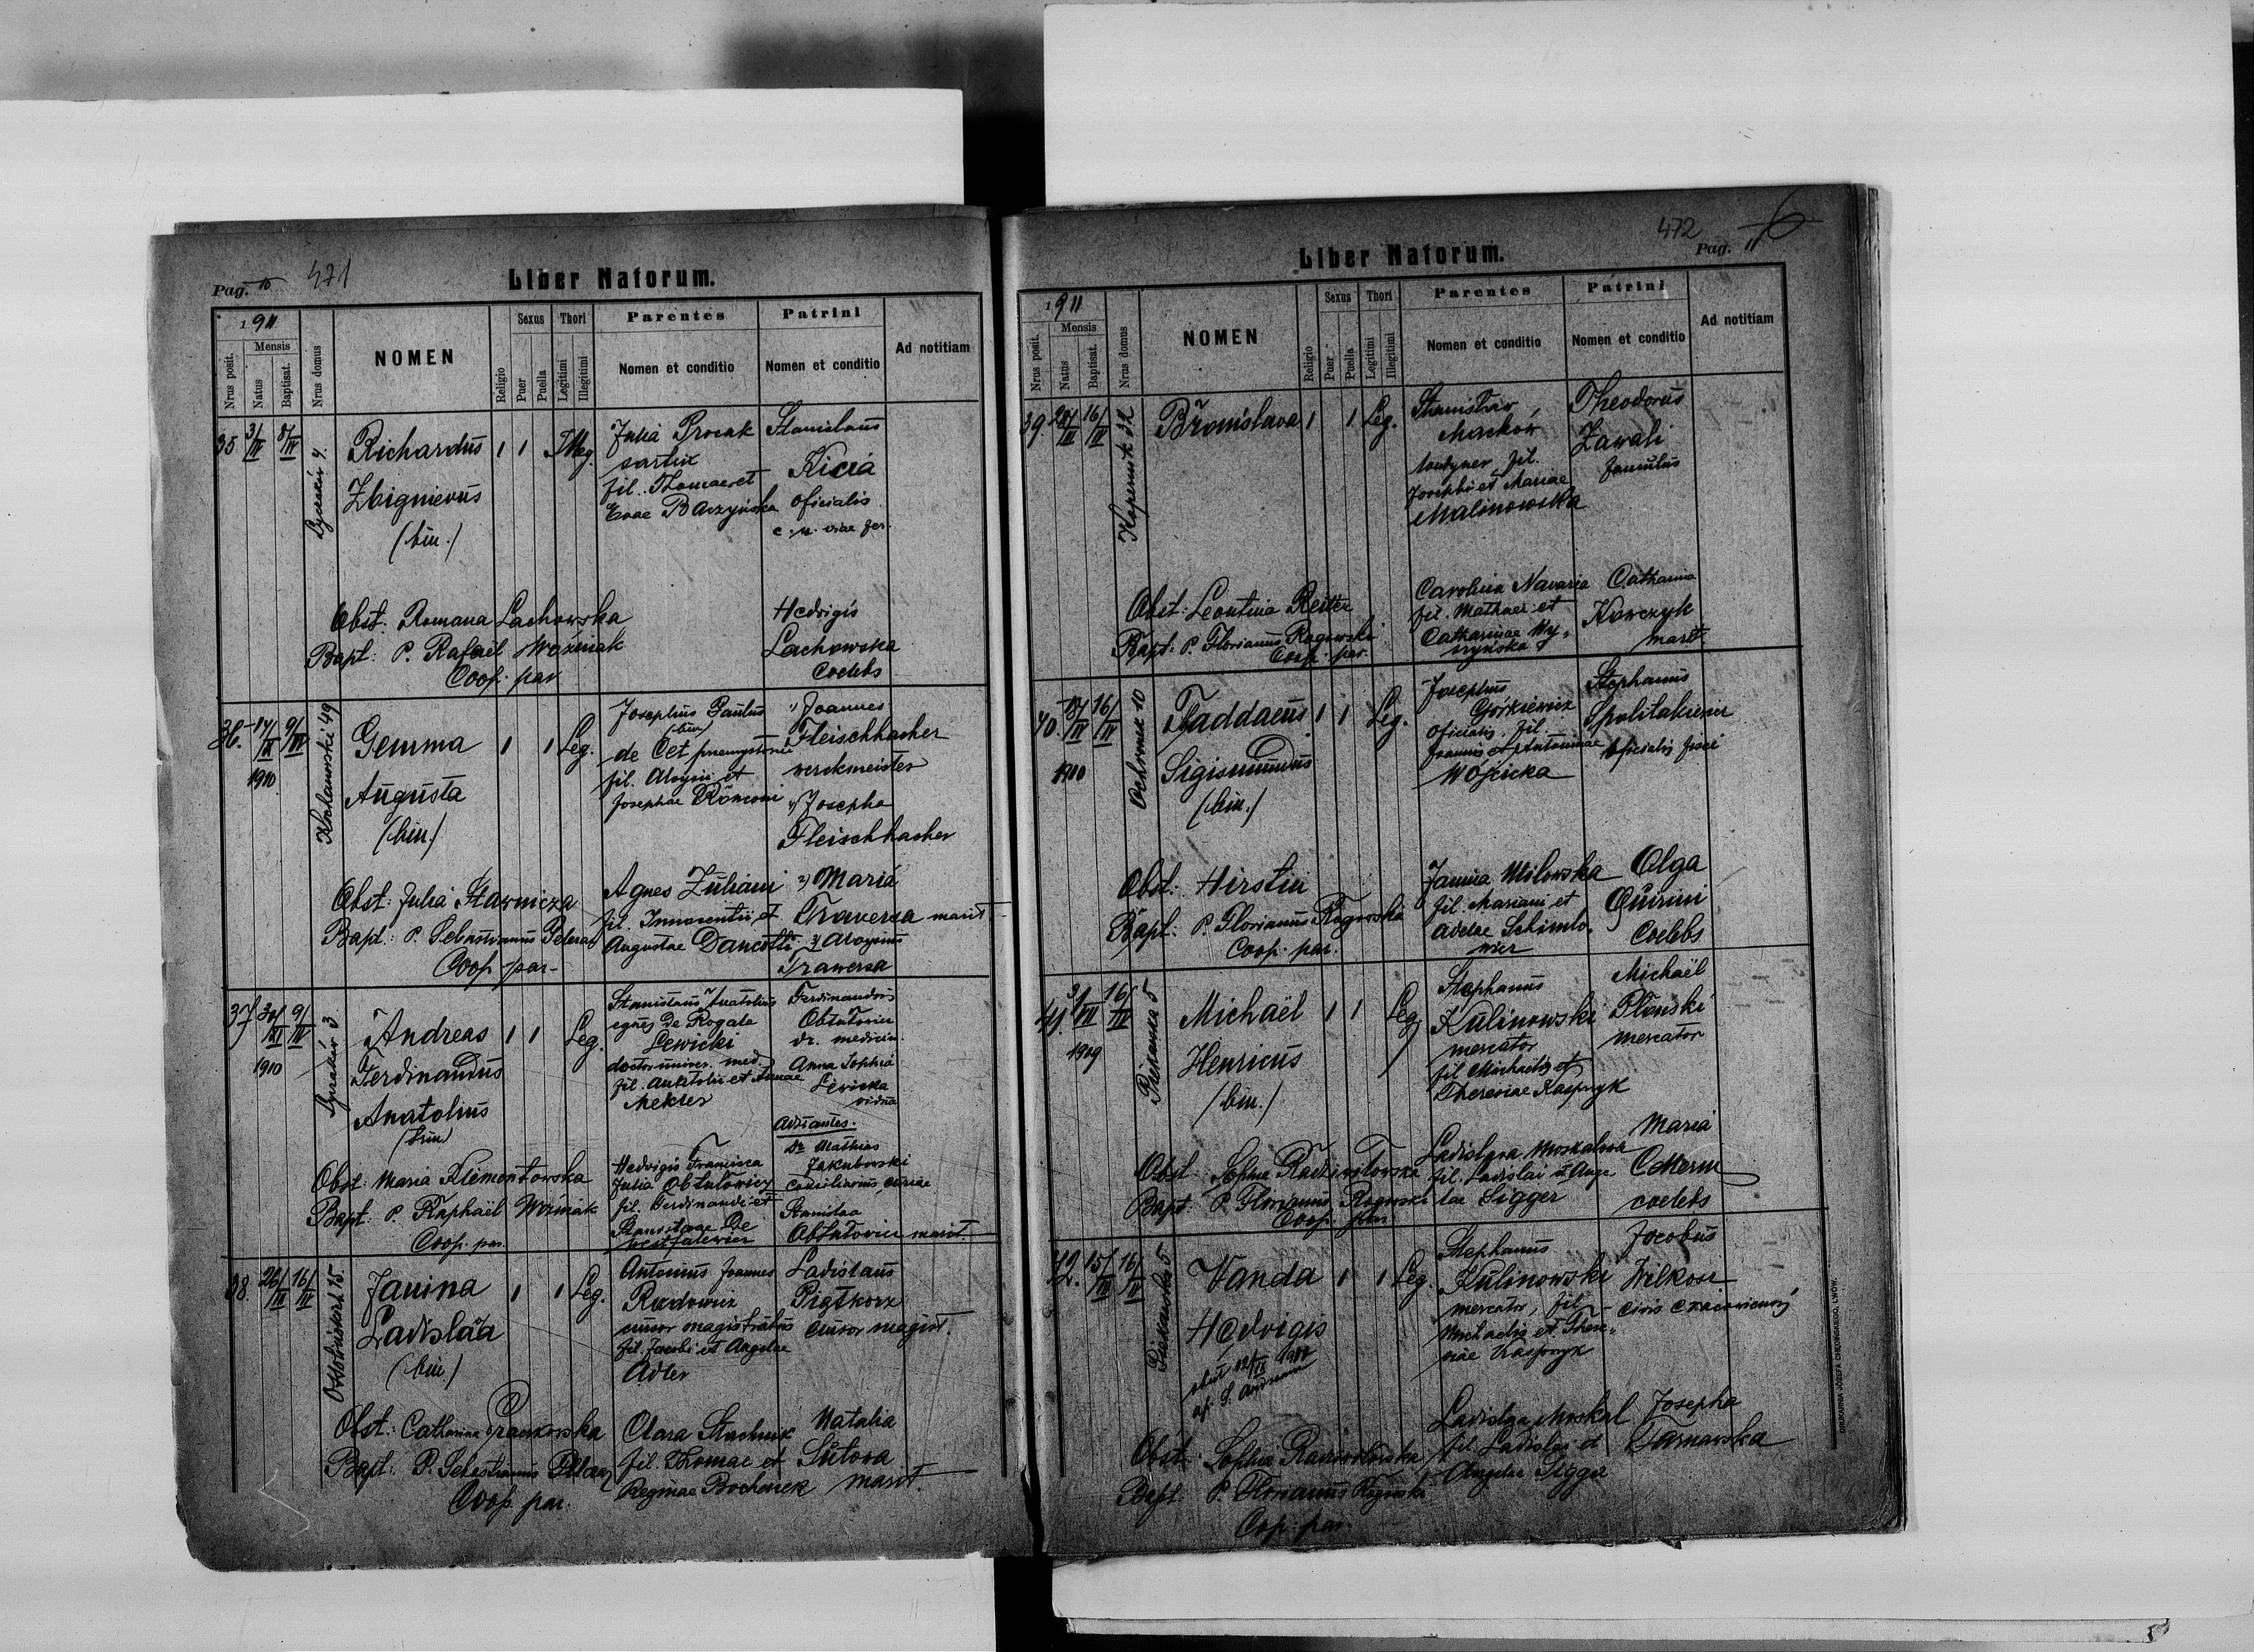 Pag. 10
471
Liber Natorum.
1911
Nrus posit.
Mensis
Natus
Baptisat.
Nrus domus
NOMEN
Religio
Sexus
Puer
Puella
Thori
Legitimi
Illegitimi
Parentes
Nomen et conditio
Patrini
Nomen et conditio
Ad notitiam
35
3/IV
8/IV
4.
Richardus
Zbignievus
(bin.)
1
1
Illeg.
Julia Procak
sartrix
fil. Thomae et
Evae Baczyńska
Stanislaus
Kicia
oficialis
c. r. viae fer.
Obst: Romana Lachowska
Bapt: P. Rafaël Woźniak
Coop. par
Hedvigis
Lachowska
Coelebs
36.
9/IV
1910
Kochanowski 49
Gemma
Augusta
(bin.)
1
1
Leg.
Josephus Paulus
(bin)
de Cet
fil. Aloysii et
Josephae Ronconi
1) Joannes
Fleischhacker
werckmeister
Josepha
Fleischhacker
Obst: Julia Starnicza
Bapt: P. Sebastianus
Coop. par.
Agnes Zuliani
fil. Innocentii et
Augustae Dancotti
2) Maria
Traversa marit
3) Aloysius
Trawersa
37
30/XI
9/IV
1910
3.
Andreas
Ferdinandus
Anatolius
(trin)
1
1
Leg.
Stanislaus Anatolius
eques De Rogala
Lewicki
doctor univer. med.
fil. Anatolii et Annae
Mekler
Ferdinandus
Obtułowicz
dr. medicin.
Anna Sophia
Lewicka
vidua
Adstantes.
Dr Mathias
Jakubowski
consiliarius curiae
Obst: Maria Klemontowska
Bapt: P. Raphaël Woźniak
Coop. par.
Hedvigis Francisca
Julia Obtułowicz
fil. Ferdinandi et
Stanislaae De
Westfalewicz
Stanislaa
Obtułowicz marit.
38.
26/III
16/IV
Ossolińskich 15.
Janina
Ladislaa
(bin.)
1
1
Leg.
Antonius Joannes
Radowicz
cursor magistratus
fil. Jacobi et Angelae
Adler
Ladislaus
Piątkorz
cursor magist.
Obst: Catharina
Bapt: P. Sebastianus
Coop. par.
Clara Stachnik
fil. Thomae et
Reginae Bochenek
Natalia
Sutora
marit.
472
Pag. 11
6
Liber Natorum.
1911
Nrus posit.
Mensis
Natus
Baptisat.
Nrus domus
NOMEN
Religio
Sexus
Puer
Puella
Thori
Legitimi
Illegitimi
Parentes
Nomen et conditio
Patrini
Nomen et conditio
Ad notitiam
39.
28/III
16/IV
Kopernik 32
Bronislava
1
1
Leg.
Stanislav
Macków
fil.
Josephi et Mariae
Malinowska
Theodorus
Zawali
famulus
Obst: Leontina Reiter
Bapt: P. Florianus Rogowski
Coop. par.
Carolina Navaria
fil. Mathaei et
Catharinae
Catharina
Karczyk
marit.
40.
16/IV
1910
Ochronek 10
Taddaeus
Sigismundus
(bin.)
1
1
Leg.
Josephus
Górkiewicz
oficialis, fil.
Joannis et Antoninae
Wójcicka
Stephanus
oficialis
Obst: Hirstin
Bapt: P. Florianus Rogowski
Coop. par.
Janina Milowska
fil. Mariani et
Adelae
Olga
Quirini
Coelebs
41.
16/IV
1909
Piekarska 5
Michaël
Henricus
(bin.)
1
1
Leg
Stephanus
Kulinowski
mercator
fil Michaelis et
Theresiae Kasprzyk
Michaël
Płonski
mercator
Obst: Sophia
Bapt: P. Florianus Rogowski
Coop. par
Ladislava Moskalowa
fil. Ladislai et Ange
lae Sigger
Maria
coelebs
42.
15/III
16/IV
Piekarska 5
Vanda
Hedvigis
obiit 12/IX
ap. S. Andream
1
1
Leg.
Stephanus
Kulinowski
mercator, fil
Michaelis et There-
siae Kasprzyk
Jacobus
Wilkosz
civis cracoviensis
Obst: Sophia
Bapt. P. Florianus Rogowski
Cop. par.
Ladislaa Moskal
fil. Ladislai et
Angelae Sigger
Josepha
Tarnawska
DRUKARNIA JÓZEFA CHĘCIŃSKIEGO, LWÓW.